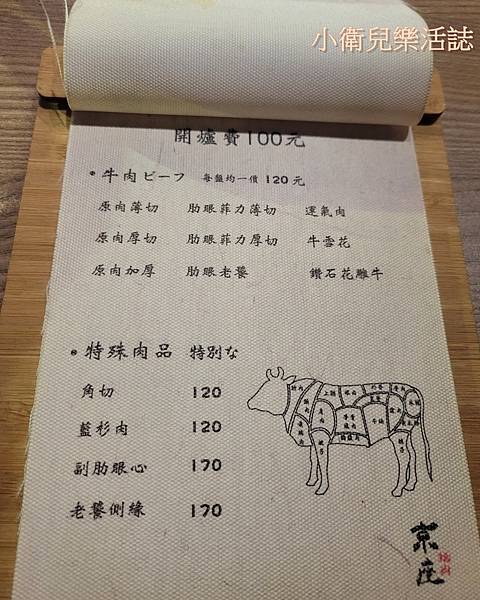 小衛兒樂活誌
開爐費100元
• 牛肉ビーフ 每盤均一價 120元
原肉薄切 肋眼菲力薄切 運氣肉
原肉厚切 肋眼菲力厚切 牛雪花
原肉加厚 肋眼老饕 鑽石花雕牛
• 特殊肉品 特別な
角切 120
藍衫肉 120
副肋眼心 170
老饕側緣 170
京座
燒肉